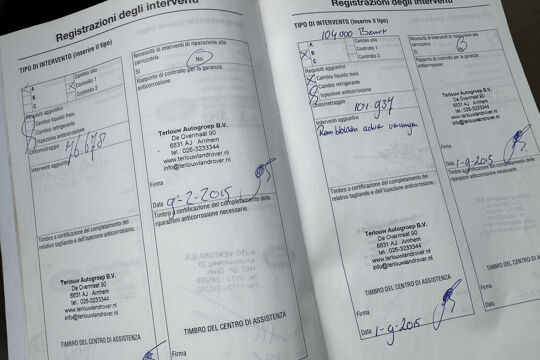 Registrazioni degli interventi
TIPO DI INTERVENTO (inserire il tipo)
A
B
C
Cambio olio
Controllo 1
Controllo 2
Requisiti aggiuntivi
Cambio liquido freni
Cambio refrigerante
Ispezione anticorrosione
Chilometraggio
76.678
Interventi aggiuntivi
Timbro a certificazione del completamento del
relativo tagliando e dell'ispezione anticorrosione.
Terlouw Autogroep B.V.
De Overmaat 90
6831 AJ Arnhem
tel.: 026-3233344
www.terlouwlandrover.nl
info@terlouwlandrover.nl
TIMBRO DEL CENTRO DI ASSISTENZA
Necessità di interventi di riparazione alla
carrozzeria
Sì
No
Rapporto di controllo per la garanzia
anticorrosione:
Terlouw Autogroep B.V.
De Overmaat 90
6831 AJ Arnhem
tel.: 026-3233344
www.terlouwlandrover.nl
info@terlouwlandrover.nl
Firma
Data 9-2-2015
Timbro a certificazione del completamento delle
riparazioni anticorrosione necessarie.
TIMBRO DEL CENTRO DI ASSISTENZA
Firma
Registrazioni degli interventi
TIPO DI INTERVENTO (inserire il tipo)
104.000 Beurt
A
B
C
Cambio olio
Controllo 1
Controllo 2
Requisiti aggiuntivi
Cambio liquido freni
Cambio refrigerante
Ispezione anticorrosione
Chilometraggio
101.937
Interventi aggiuntivi
Remblokken achter vervangen
Timbro a certificazione del completamento del
relativo tagliando e dell'ispezione anticorrosione.
Terlouw Autogroep B.V.
De Overmaat 90
6831 AJ Arnhem
tel.: 026-3233344
www.terlouwlandrover.nl
info@terlouwlandrover.nl
TIMBRO DEL CENTRO DI ASSISTENZA
1-9-2015
Necessità di interventi di riparazione alla
carrozzeria
Sì
Rapporto di controllo per la garanzia
anticorrosione:
Firma
Data 1-9-2015
Timbro a certificazione del completamento delle
riparazioni anticorrosione necessarie.
TIMBRO DEL CENTRO DI
Firma
Data